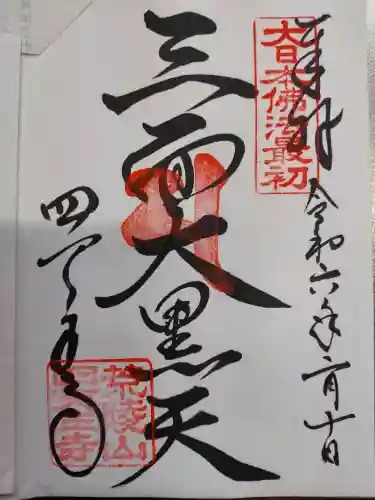 奉拝
令和六年二月十日
大日本佛法最初
三面大黒天
四天王寺
荒陵山
四天王寺